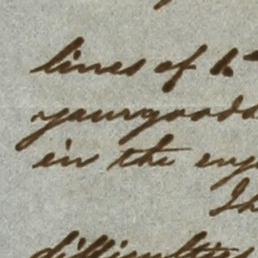 lines of
yourgoods
in the
difficulties